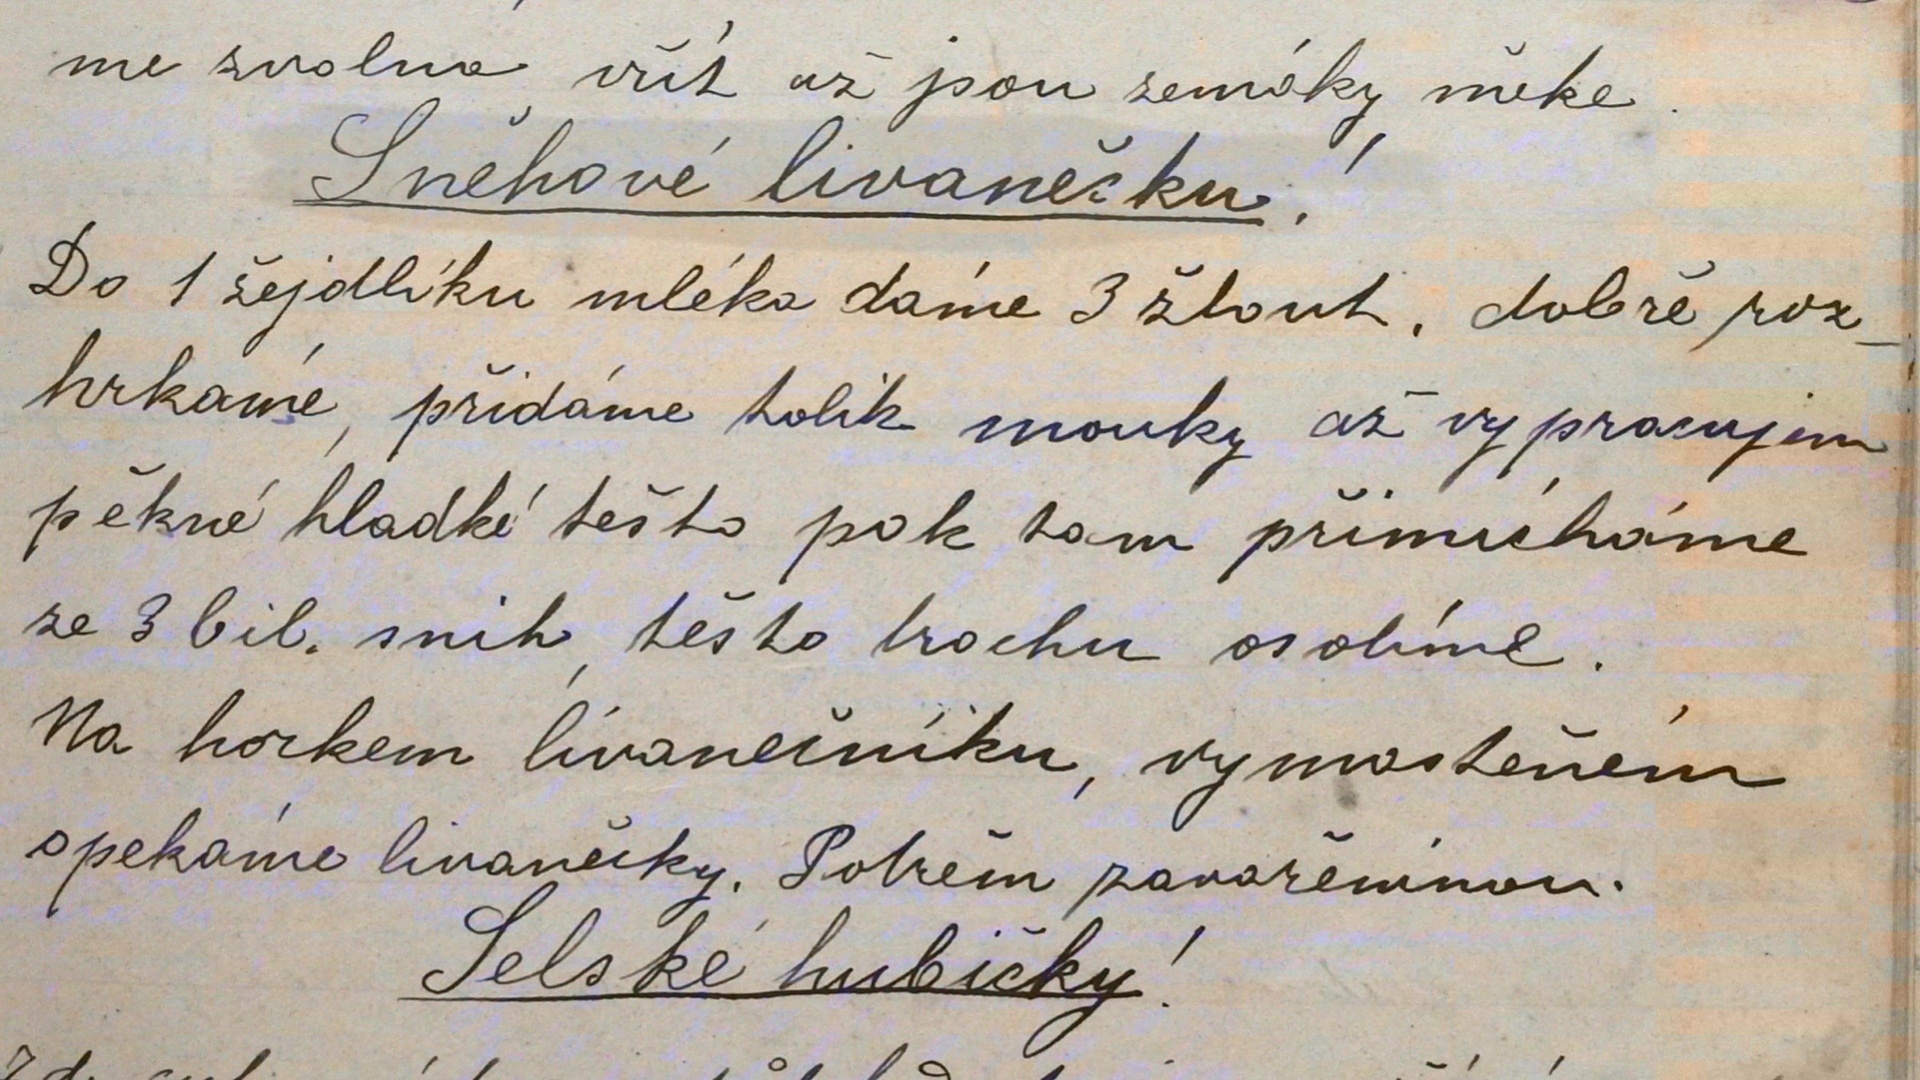 me zvolna vřít až jsou zemáky měke.
Sněhové livanečku!
Do 1 šejdlíku mléka dáme 3 žlout. dobře roz-
hrkáme, přidáme tolik mouky až vypracujem
pěkné hladké těsto pak tam přimícháme
ze 3 bil. snih, těsto trochu osolíme.
Na horkem lívanečníku, vymasteném
opekáme livanečky. Potřem zavařeninou.
Selské hubičky!